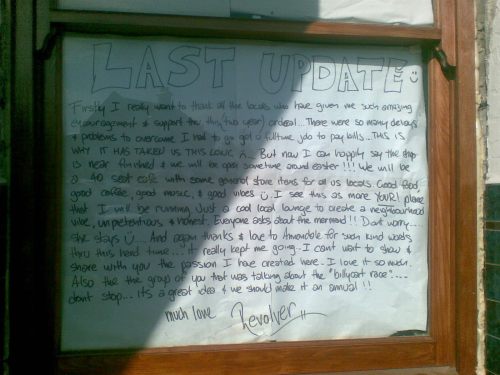 LAST UPDATE
Firstly I really want to thank all the locals who have given me such amazing
encouragement & support thru this two year ordeal... There were so many delays
& problems to overcome I had to go get a fulltime job to pay bills... THIS IS
WHY IT HAS TAKEN US THIS LONG... But now I can happily say the shop
is near finished & we will be open sometime around easter!!! We will be
a 40 seat cafe with some general store items for all us locals. Good food,
good coffee, good music, & good vibes I see this as more YOUR! place
that I will be running Just a cool local lounge to create a neighbourhood
vibe, unpretentious & honest. Everyone asks about the mermaid!! Dont worry...
she stays ... And again thanks & love to Annandale for such kind words
thru this hard time... It really kept me going. I cant wait to show &
share with you the passion I have created here. I love it so much.
Also the the group of you that was talking about the "billycart race"....
dont stop... Its a great idea & we should make it an annual!!
much love Revolver